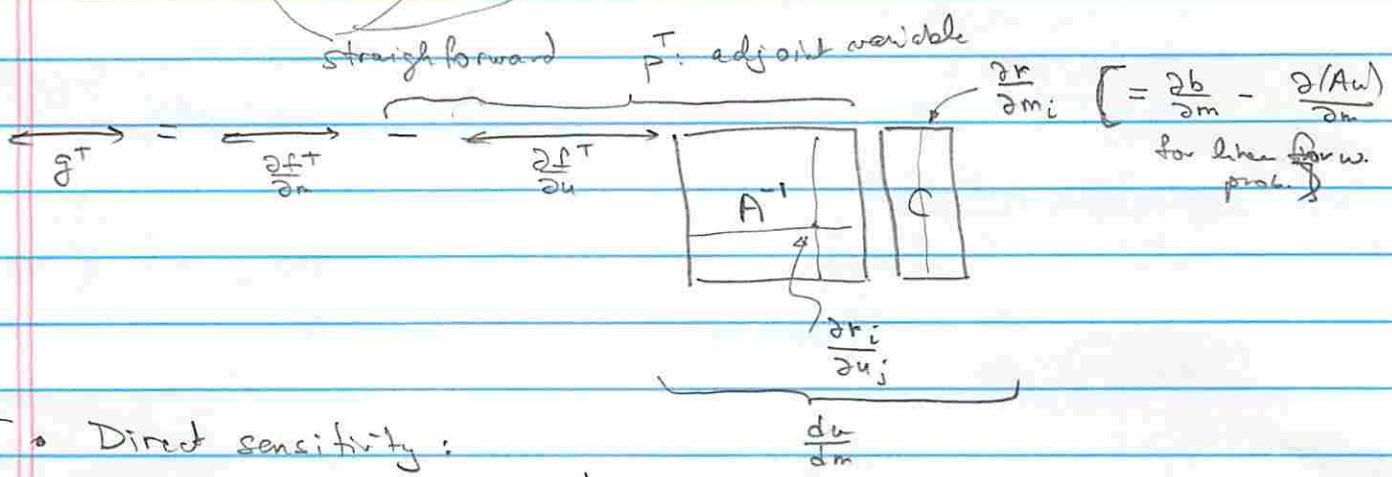 straighforward pᵀ: adjoint variable
∂r/∂mᵢ [= ∂b/∂m - ∂(Au)/∂m
for linear forw.
prob.]
gᵀ = ∂fᵀ/∂m - ∂fᵀ/∂u A⁻¹ C
∂rᵢ/∂uⱼ
du/dm
• Direct sensitivity: